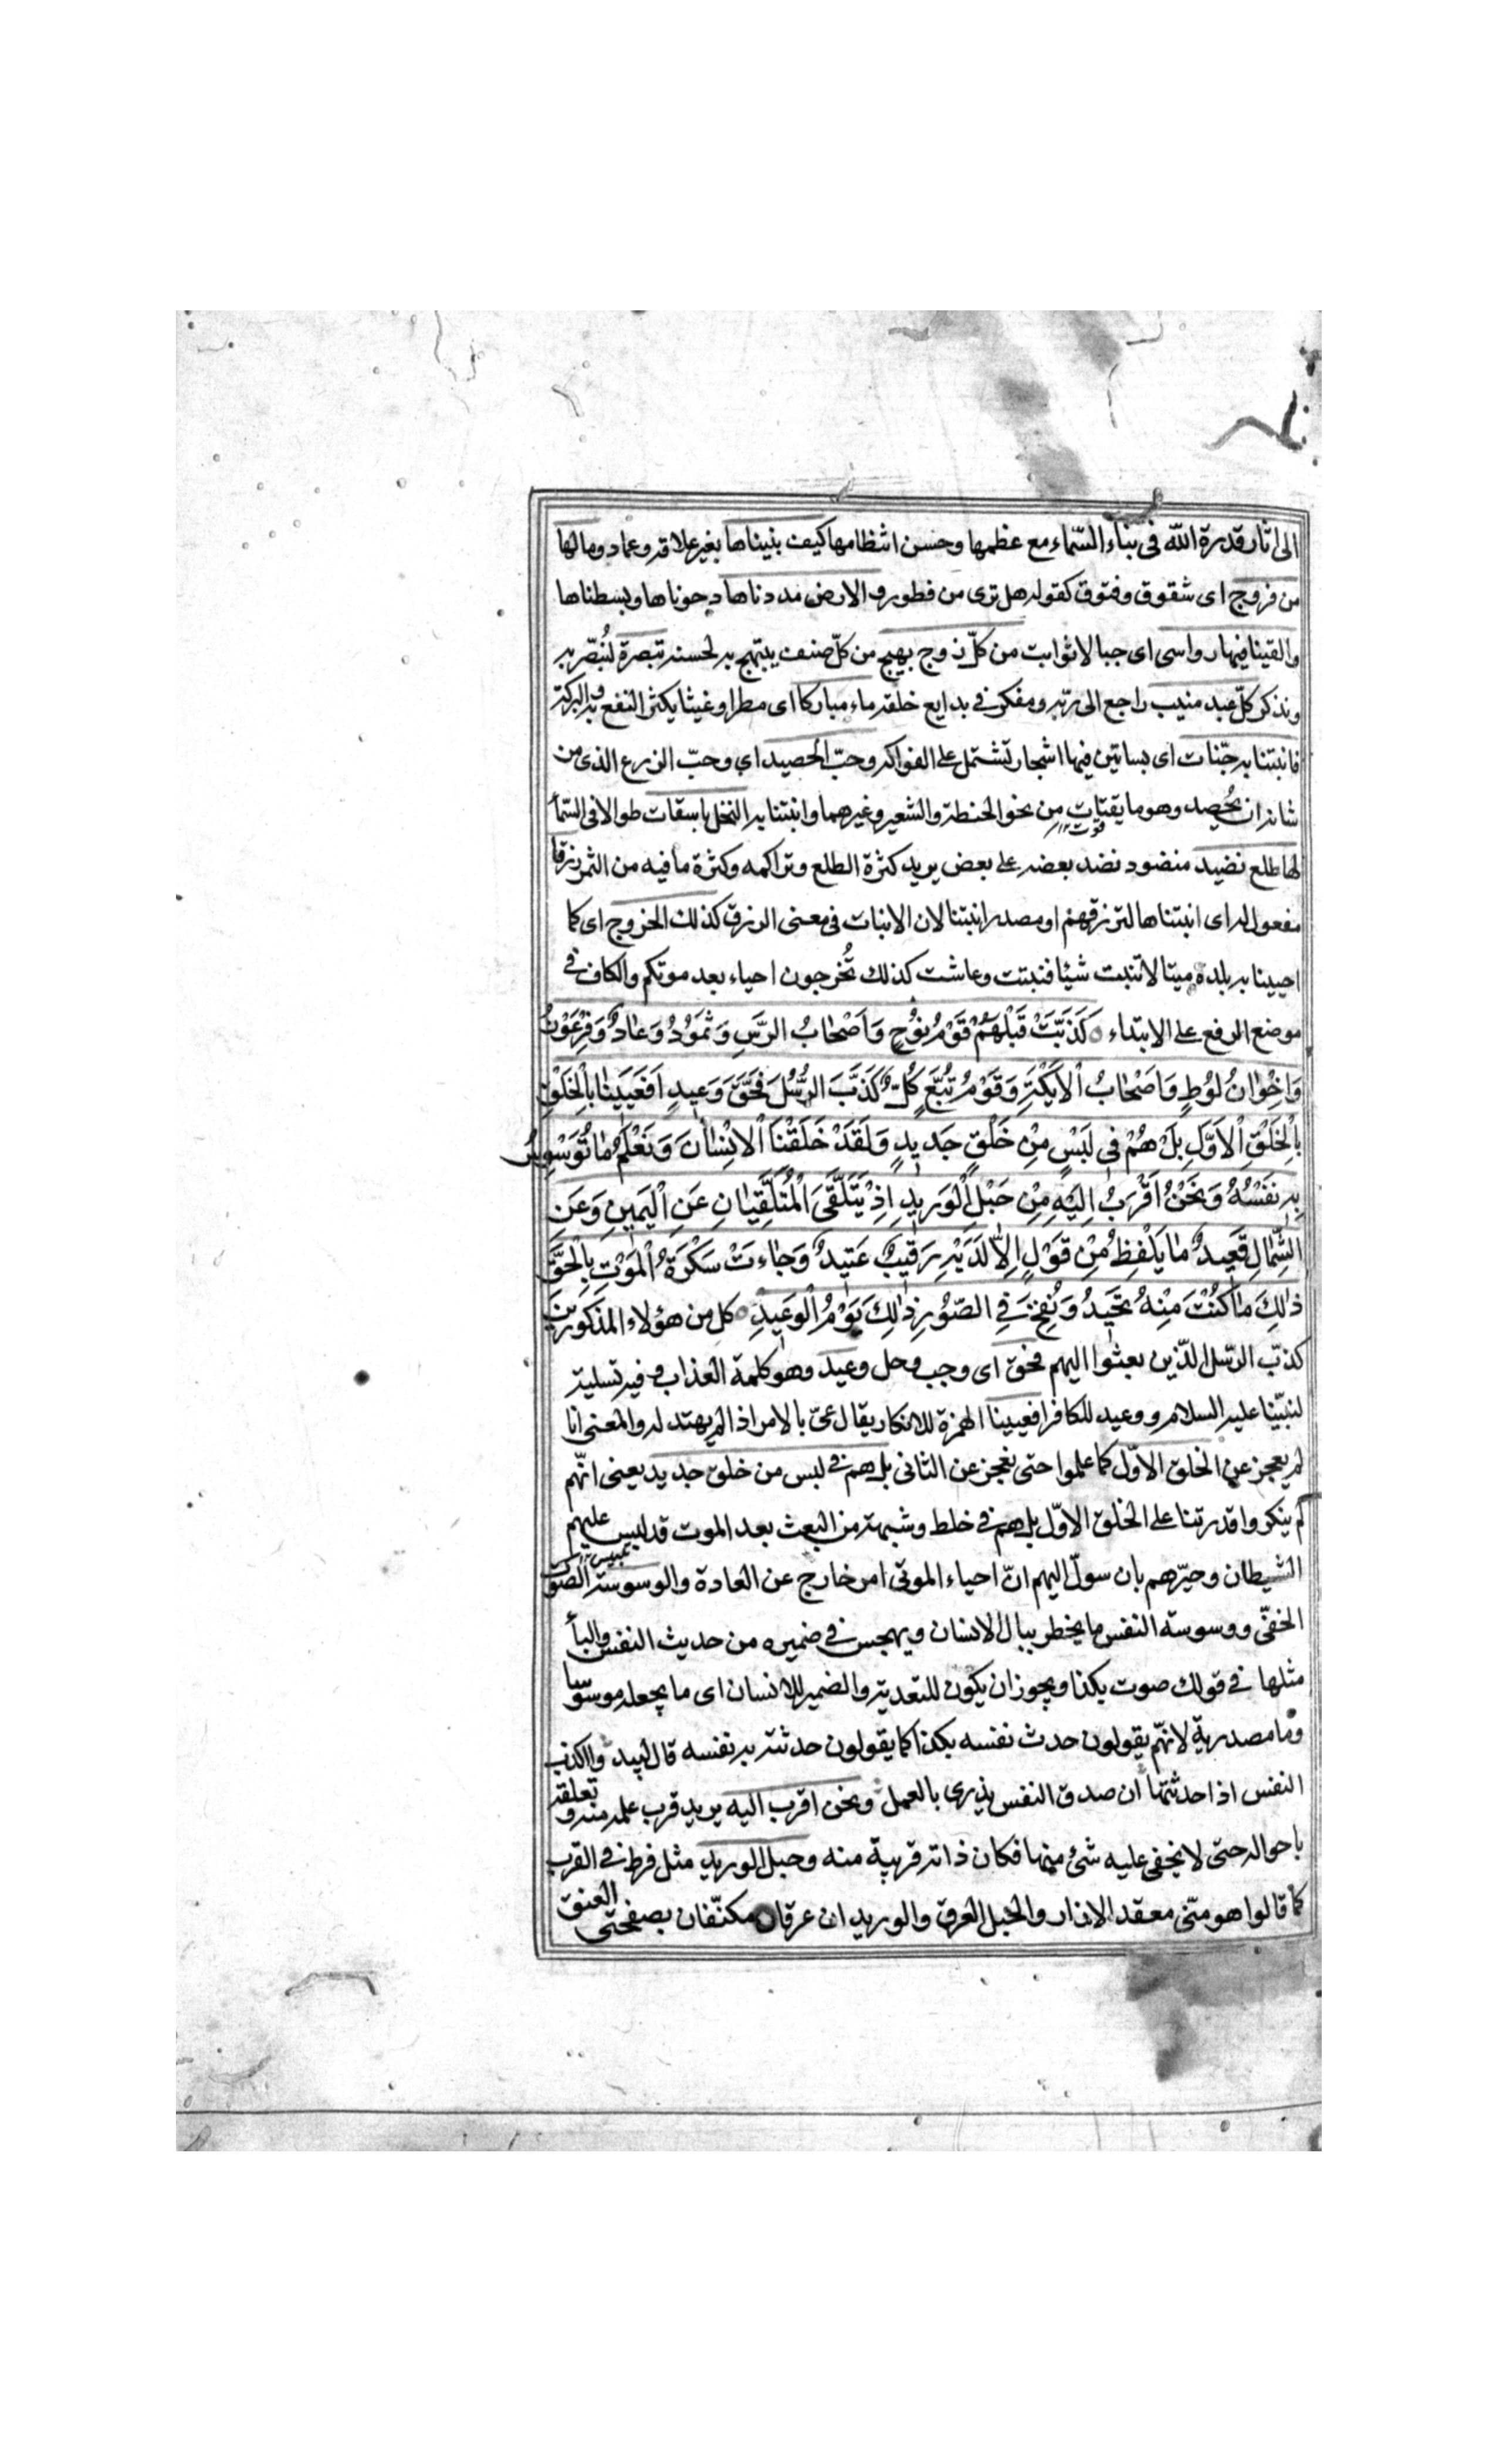 الى اثار قدرة الله فى بناء السّماء مع عظمها وحسن انتظامها كيف بنيناها بغير علاقه وعماد ومالها
من فروج اى شقوق وفتوق كقوله هل ترى من فطور والارض مددناها دحوناها وبسطناها
والقينا فيها رواسى اى جبالا ثوابت من كلّ زوج بهيج من كلّ صنف يبتهج به لحسنه تبصرة لنُبصّر به
ونذكر كلّ عبد منيب راجع الى ربّه ومفكر فى بدايع خلقه ماء مباركا اى مطرا وغيثا يكثر النفع به والبركة
فانبتنا به جنّات اى بساتين فيها اشجار تشتمل على الفواكه وحبّ الحصيد اى وحبّ الزرع الذى من
شانه ان يُحصد وهو ما يقتات من نحو الحنطة والشعير وغيرهما وانبتنا به النخل باسقات طوالا فى السّمآ
لها طلع نضيد منضود نضد بعضه على بعض يريد كثرة الطلع وتراكمه وكثرة ما فيه من الثمر رزقا
مفعول له اى انبتناها لنرزقهم او مصدر انبتنا لان الانبات فى معنى الرزق كذلك الخروج اى كما
احيينا به بلدة ميتا لا تنبت شيئا فنبتت وعاشت كذلك تُخرجون احياء بعد موتكم والكاف فى
موضع الرفع على الابتداء ○ كَذَّبَتْ قَبْلَهُمْ قَوْمُ نُوْحٍ وَاَصْحٰابُ الرَّسِ وَثَمُوْدُ وَعٰادٌ وَفِرْعَوْنُ
وَاِخْوٰانُ لُوْطٍ وَاَصْحٰابُ الْاَيْكَةِ وَقَوْمُ تُبَّعٍ كُلٌّ كَذَّبَ الرُّسُلَ فَحَقَّ وَعيدِ اَفَعَيينٰا بِالْخَلْقِ
بِالْخَلْقِ الْاَوَّلِ بَلْ هُمْ فى لَبْسٍ مِنْ خَلْقٍ جَديدٍ وَلَقَدْ خَلَقْنَا الْاِنْسٰانَ وَنَعْلَمُ مٰا تُوَسْوِسُ
بِهِ نَفْسُهُ وَنَحْنُ اَقْرَبُ اِلَيْهِ مِنْ حَبْلِ الْوَريدِ اِذْ يَتَلَقَّى الْمُتَلَقِّيٰانِ عَنِ الْيَمينِ وَعَنِ
الشِّمٰالِ قَعيدٌ مٰا يَلْفِظُ مِنْ قَوْلٍ اِلّٰا لَدَيْهِ رَقيبٌ عَتيدٌ وَجٰاءَتْ سَكْرَةُ الْمَوْتِ بِالْحَقِّ
ذٰلِكَ مٰا كُنْتَ مِنْهُ تَحيدُ وَنُفِخَ فِى الصُّوْرِ ذٰلِكَ يَوْمُ الْوَعيدِ ○ كل من هؤلاء المذكورين
كذّب الرّسل الذّين بعثوا اليهم فحق اى وجب وحل وعيد وهو كلمة العذاب وفيه تسلية
لنبيّنا عليه السلام ووعيد للكافر افعيينا الهمزة للانكار يقال عىّ بالامر اذا لم يهتد له والمعنى انا
لم يعجز عن الخلق الاوّل كما علموا حتى نعجز عن الثانى بل هم فى لبس من خلق جديد يعنى انهّم
لم ينكروا قدرتنا على الخلق الاوّل بل هم فى خلط وشبهة من البعث بعد الموت قد لبس عليهم
الشيطان وحيّرهم بان سوّل اليهم انّ احياء الموتى امر خارج عن العادة والوسوسة الصّوت
الخفىّ ووسوسة النفس ما يخطر ببال الانسان ويهجس فى ضميره من حديث النفس والبآ
مثلها فى قولك صوت بكذا ويجوز ان يكون للتعدية والضمير للانسان اى ما يجعله موسوسا
وما مصدرية لانهّم يقولون حدث نفسه بكذا كما يقولون حدثته به نفسه قال لبيد واكذب
النفس اذا حدثتها ان صدق النفس يزرى بالعمل ونحن اقرب اليه يريد قرب علمه منه وتعلقه
باحواله حتى لا يخفى عليه شئ منها فكان ذاته قريبة منه وحبل الوريد مثل فرط فى القرب
كما قالوا هو منّى معقد الازار والحبل العرق والوريدان عرقان مكتنفان بصفحتى العنق